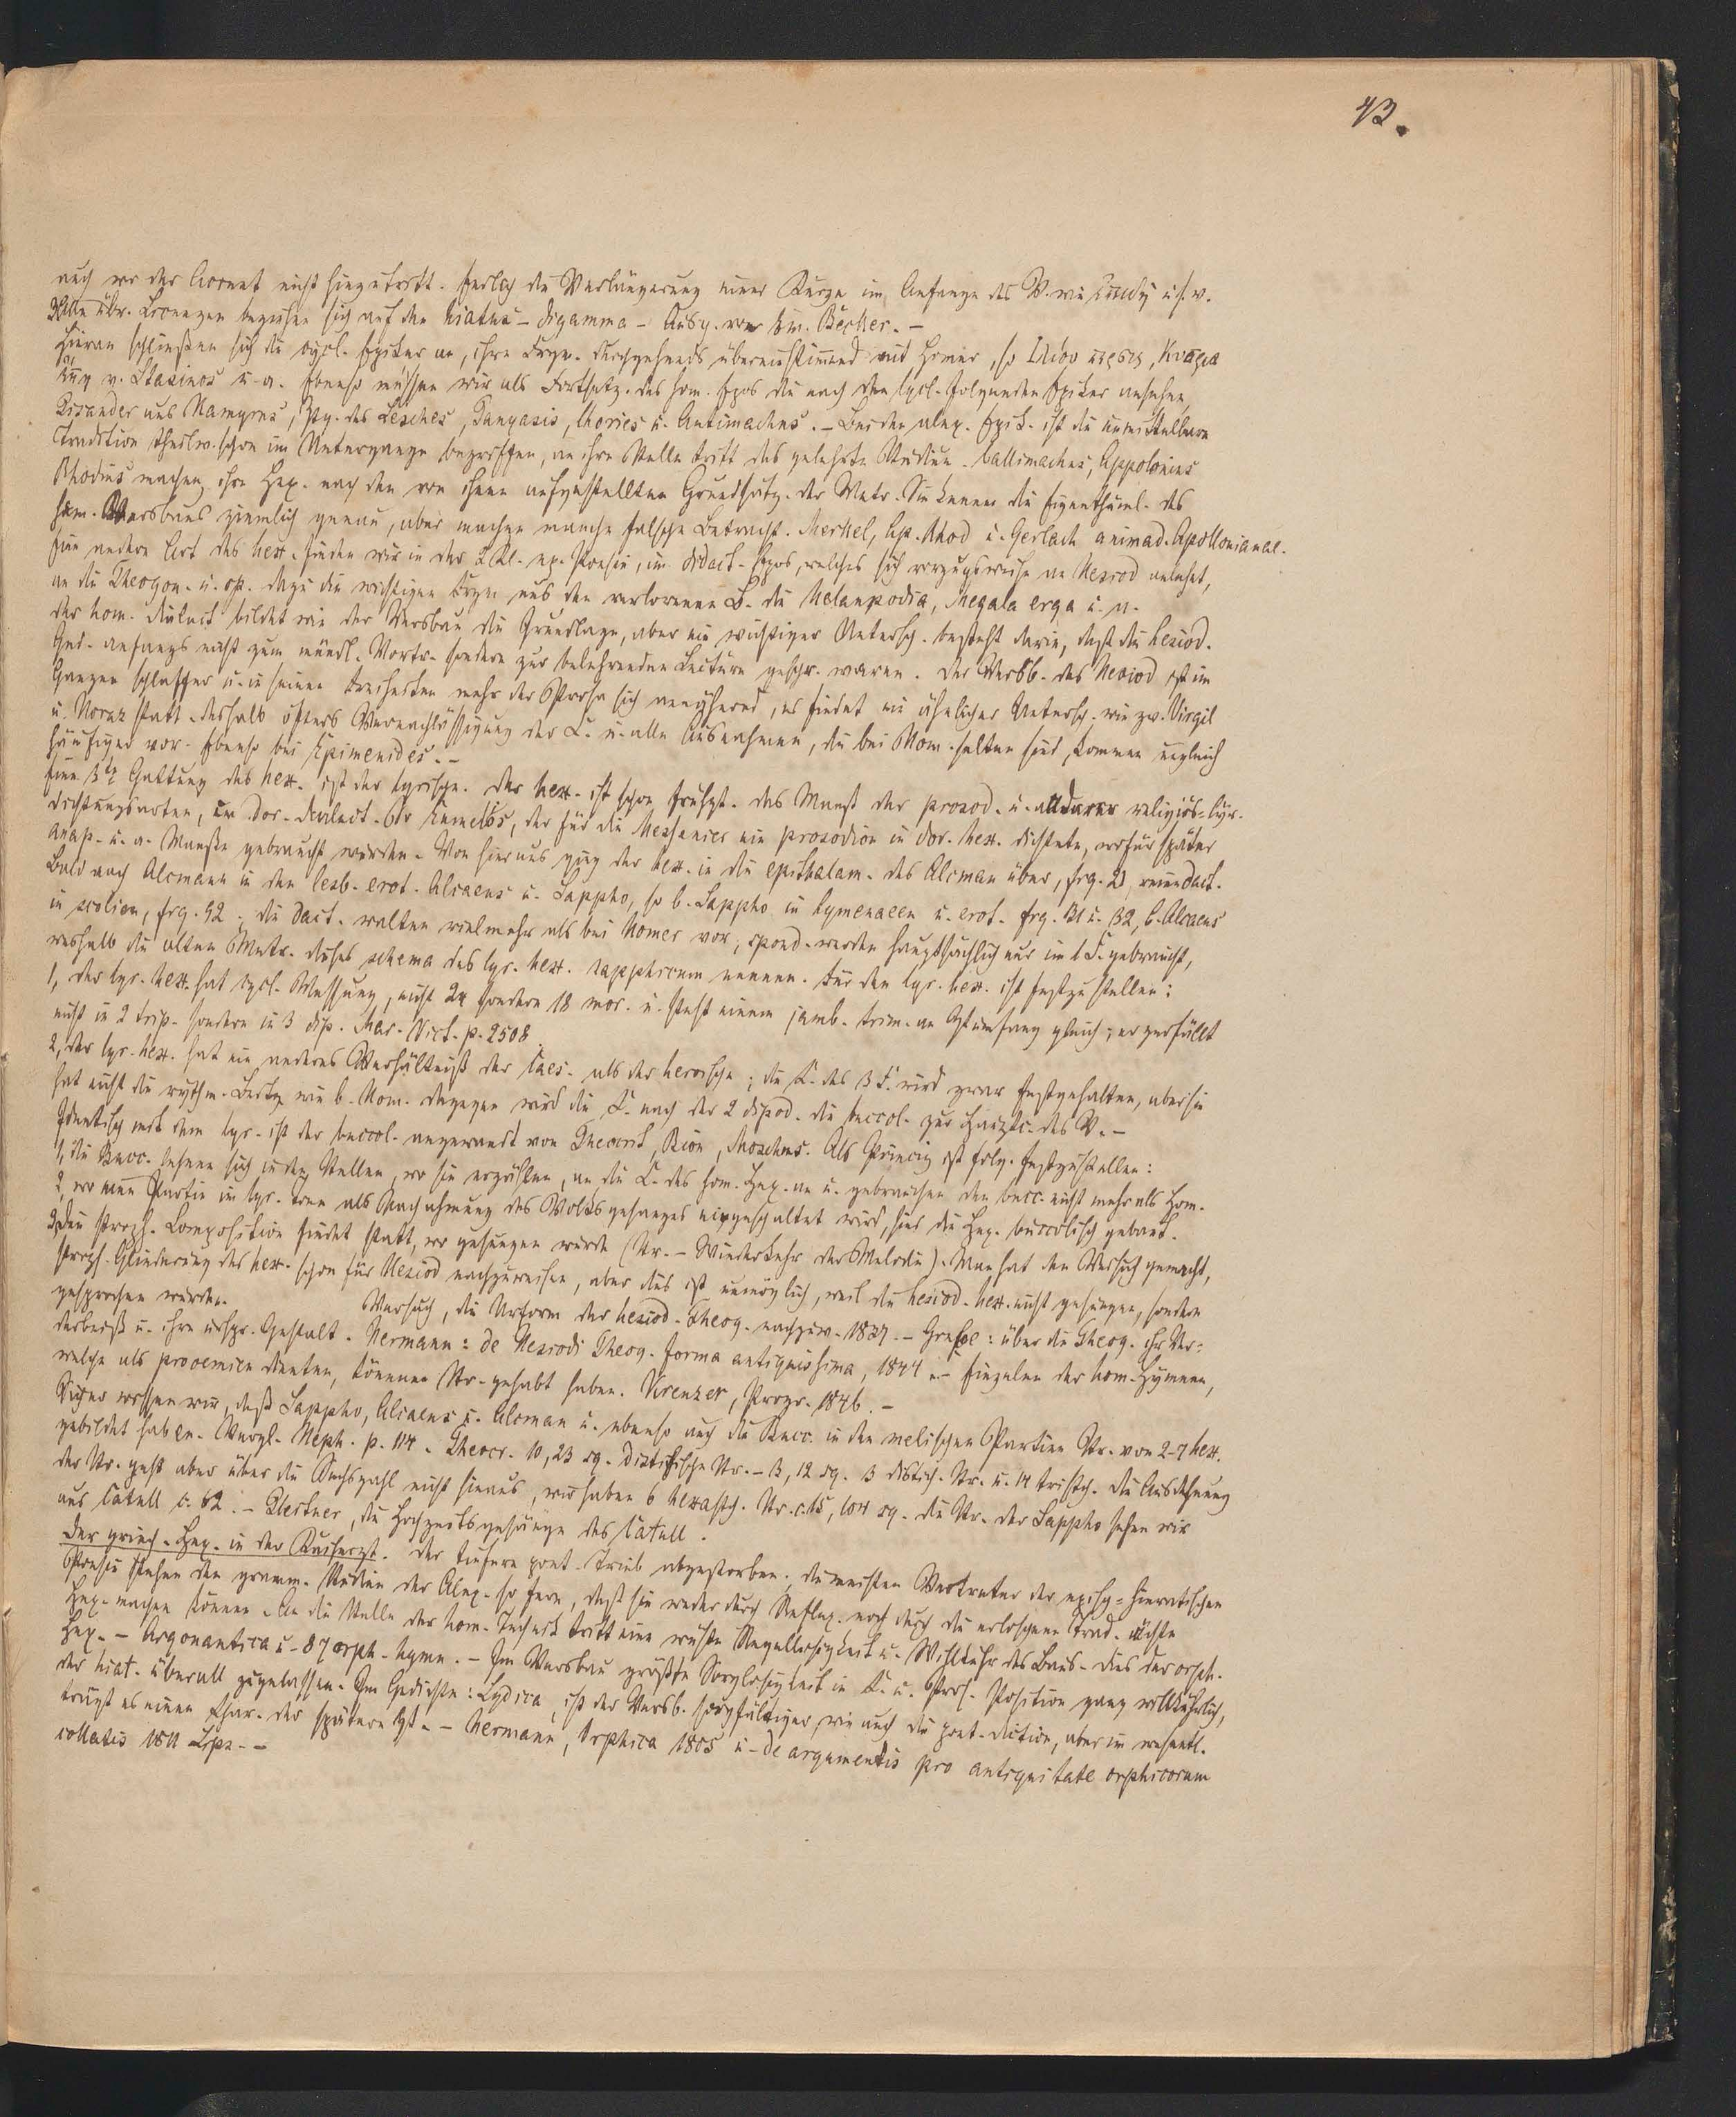 43.
auch wo der Accent nicht hinzutritt. Endlich die Verlängerung einer Kürze im Anfange des V. wie ἐπειδή u. s. w.
Alle übr. Licenzen beziehen sich auf den hiatus - digamma - Ausg. von Im. Becker. -
Hieran schließen sich die cycl. Epiker an, ihre Frgm. durchgehends übereinstimmend mit Homer, so Ἰλίου πέρσις, Κύπρια
ἔπη v. Stasinos u. a. Ebenso müssen wir als Fortsetz. des hom. Epos die nach den cycl. folgenden Epiker ansehen,
Pisander aus Kamyros, des Lesches, Panyasis, Choriles u. Antimachus. - Bei den alex. Epik. ist die unmittelbare
Tradition theilw. schon im Untergange begriffen, an ihre Stelle tritt das gelehrte Studium. Callimachus, Appolonius
Rhodius machen ihre Hex. nach den von ihnen aufgestellten Grundsätz. der Metr. Sie kennen die Eigenthüml. des
hom. Versbaus ziemlich genau, aber machen manche falsche Betracht. Merkel, Ap. Rhod u. Gerlach animad. Apollonianae.
Eine andere Art des hex. finden wir in der 2 Kl. ep. Poesie, im didact. Epos, welches sich vorzugsweise an Hesiod anlehnt,
an die Theogon. u. op. dazu die wichtigen Frgm aus den verlorenen B. die Melampodia, Megala erga u. a.
Der hom. Dialect bildet wie der Versbau die Grundlage, aber ein wichtiger Untersch. besteht darin, daß die hesiod.
Ged. anfangs nicht zum mündl. Vortr. sondern zur belehrenden Lecture geschr. waren. Der Versb. des Hesiod ist im
Ganzen schlaffer u. in seinen Freiheiten mehr der Prosa sich annähernd, es findet ein ähnlicher Untersch. wie zw. Virgil
u. Horaz statt. deshalb öfters Vernachlässigung der C. u. alle Ausnahmen, die bei Hom. selten sind, kommen ungleich
häufiger vor. Ebenso bei Epimenides. -
Eine 3te Gattung des hex. ist der lyrische. Der hex. ist schon frühzt. das Maaß der prosod. u. anderer religiös-lyr.
Dichtungsarten, im dor. Dialect. Eumelos, der für die Messenier ein prosodion in dor. hex. dichtete, wofür später
anap. u. a. Maaße gebraucht wurden. Von hier aus ging der hex. in die epithalam. des Alcman über, frg. 21 rein dact.
Bald nach Alcmann in den lesb. erot. Alcaeus u. Sappho, so b. Sappho in hymenaeen u. erot. frg. 131 u. 132, b. Alcaeus
in scolien, frg. 92. die dact. walten vielmehr als bei Homer vor, spond. werden hauptsächlich nur im 1 F. gebraucht,
weshalb die alten Metr. dieses schema des lyr. hex. sapphicum nennen. Für den lyr. hex. ist festzustellen:
1, der lyr. hex. hat cycl. Messung, nicht 24 sondern 18 mor. u. steht einem jamb. trim. an Umfang gleich; er zerfällt
nicht in 2 trip. sondern in 3 dip. Mar. Vict. p. 2508
2, der lyr. hex. hat ein anderes Verhältniß der Caes. als der heroische; die C. des 3 F. wird zwar festgehalten, aber sie
hat nicht die rythm. wie b. Hom. dagegen wird die C. nach der 2 dipod. die buccol. zur Hauptc. des V. -
Identisch mit dem lyr. ist der buccol. angewandt von Theocrit, Bion, Moschus. Als Princip ist folg. festzustellen:
1, die Bucc. lehnen sich in den Stellen, wo sie erzählen, an die C. des hom. Hex. an u. gebrauchen den bucc. nicht mehr als Hom.
2, wo eine Partie im lyr. Tone als Nachahmung des Volksgesanges eingeschaltet wird, sind die Hex. buccolisch gebaut.
3, Die stroph. Composition findet statt, wo gesungen wurde (Str. - Wiederkehr der Melodie). Man hat den Versuch gemacht,
stroph. Gliederung des hex. schon für Hesiod nachzuweisen, aber dies ist unmöglich, weil die hesiod. hex. nicht gesungen, sondern
gesprochen wurden. Versuch, die Urform der hesiod. Theog. nachzuw. 1837. - : über die Theog. ihr Ver-
derbniß u. ihre urspr. Gestalt. Hermann: de Hesiodi Theog. forma antiquissima, 1844. - Einzelne der hom. Hymnen,
welche als prooemien dienten, können Str. gehabt haben. Kreuzer, Progr. 1846. -
Sicher wissen wir, daß Sappho, Alcaeus u. Alcman u. ebenso auch die Bucc. in den melischen Partien Str. von 2-7 hex.
gebildet haben. Vergl. Heph. p. 114. Theocr. 10, 23 sq. distichische Str. - 3, 12 sq. 3 distich. Str. u. 14 tristich. Die Ausdehnung
der Str. geht aber über die Sechszahl nicht hinaus, wir haben 6 hexastich. Str. c. 15, 104 sq. die Str. der Sappho sehen wir
aus Catull c. 62. - Pleitner, die Hochzeitsgesänge des Catull.
Der griech. Hex. in der Kaiserzt. Der tiefere poet. Trieb abgestorben; die meisten Vertreter der episch-hieratischen
Poesie stehen den gramm. Studien der Alex. so fern, daß sie weder durch Reflex. noch durch die erloschene Trad. ächte
Hex. machen können. An die Stelle der hom. Technik tritt eine wüste Regellosigkeit u. Willkühr des Baus. Dies der orph.
Hex. - Argonautica u. 87 orph. hymn. - Im Versbau größte Sorglosigkeit in C. u. Pros. Position ganz willkührlich,
der hiat. überall zugelassen. Im Gedichte: Lydica, ist der Versb. sorgfältiger, wie auch die poet. Diction, aber im wesentl.
trägt es einen Char. der spätern Zt. - Hermann, Orphica 1805 u. de argumentis pro antiquitate orphicorum
collatis 1811 Lips. -